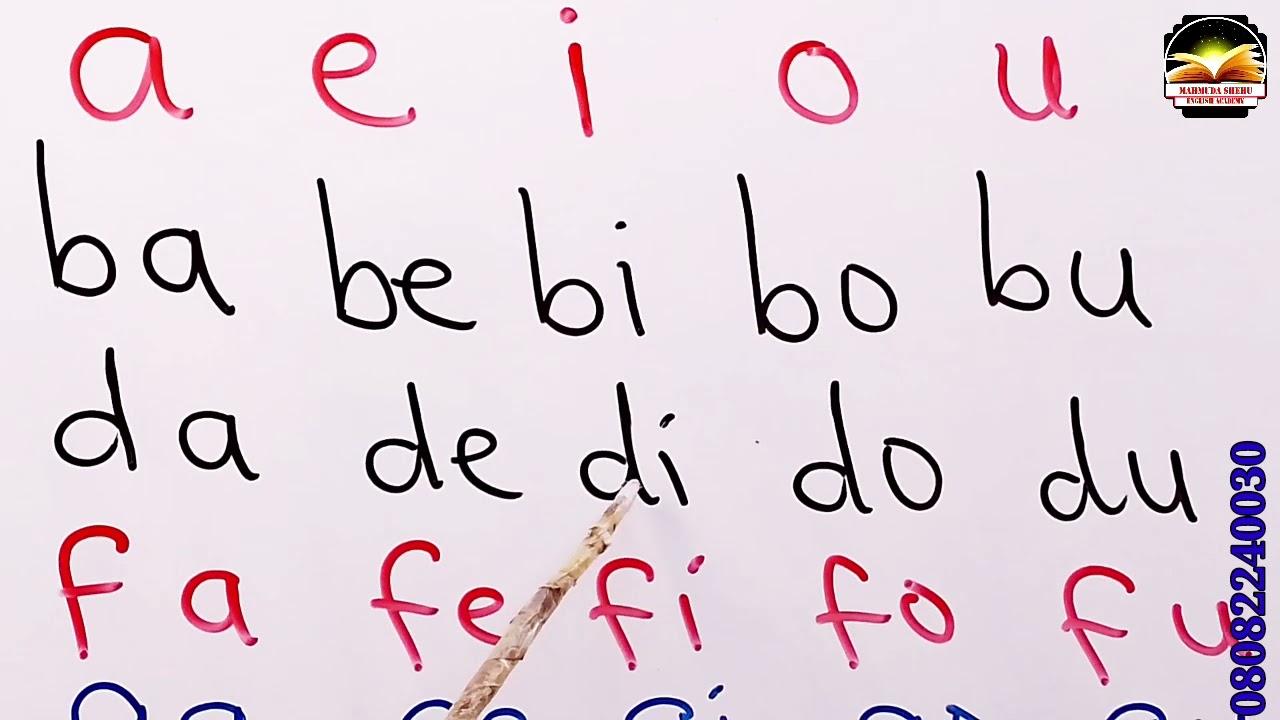 a e i o u
MAHMUDA SHEHU
ENGLISH ACADEMY
ba be bi bo bu
da de di do du
fa fe fi fo fu
08082240030